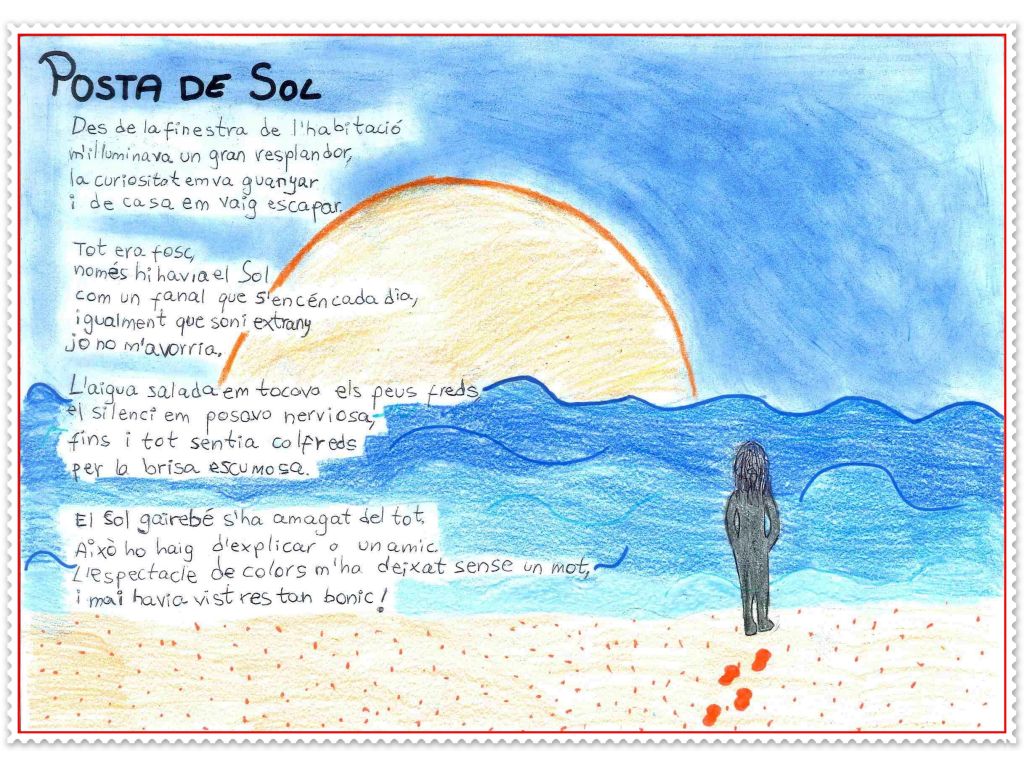 POSTA DE SOL
Des de la finestra de l'habitació
m'il·luminava un gran resplandor,
la curiositat em va guanyar
i de casa em vaig escapar.
Tot era fosc,
només hi havia el Sol
com un fanal que s'encén cada dia,
igualment que soni extrany
jo no m'avorria.
L'aigua salada em tocava els peus freds,
el silenci em posava nerviosa,
fins i tot sentia calfreds
per la brisa escumosa.
El Sol gairebé s'ha amagat del tot.
Això ho haig d'explicar a un amic.
L'espectacle de colors m'ha deixat sense un mot,
i mai havia vist res tan bonic!